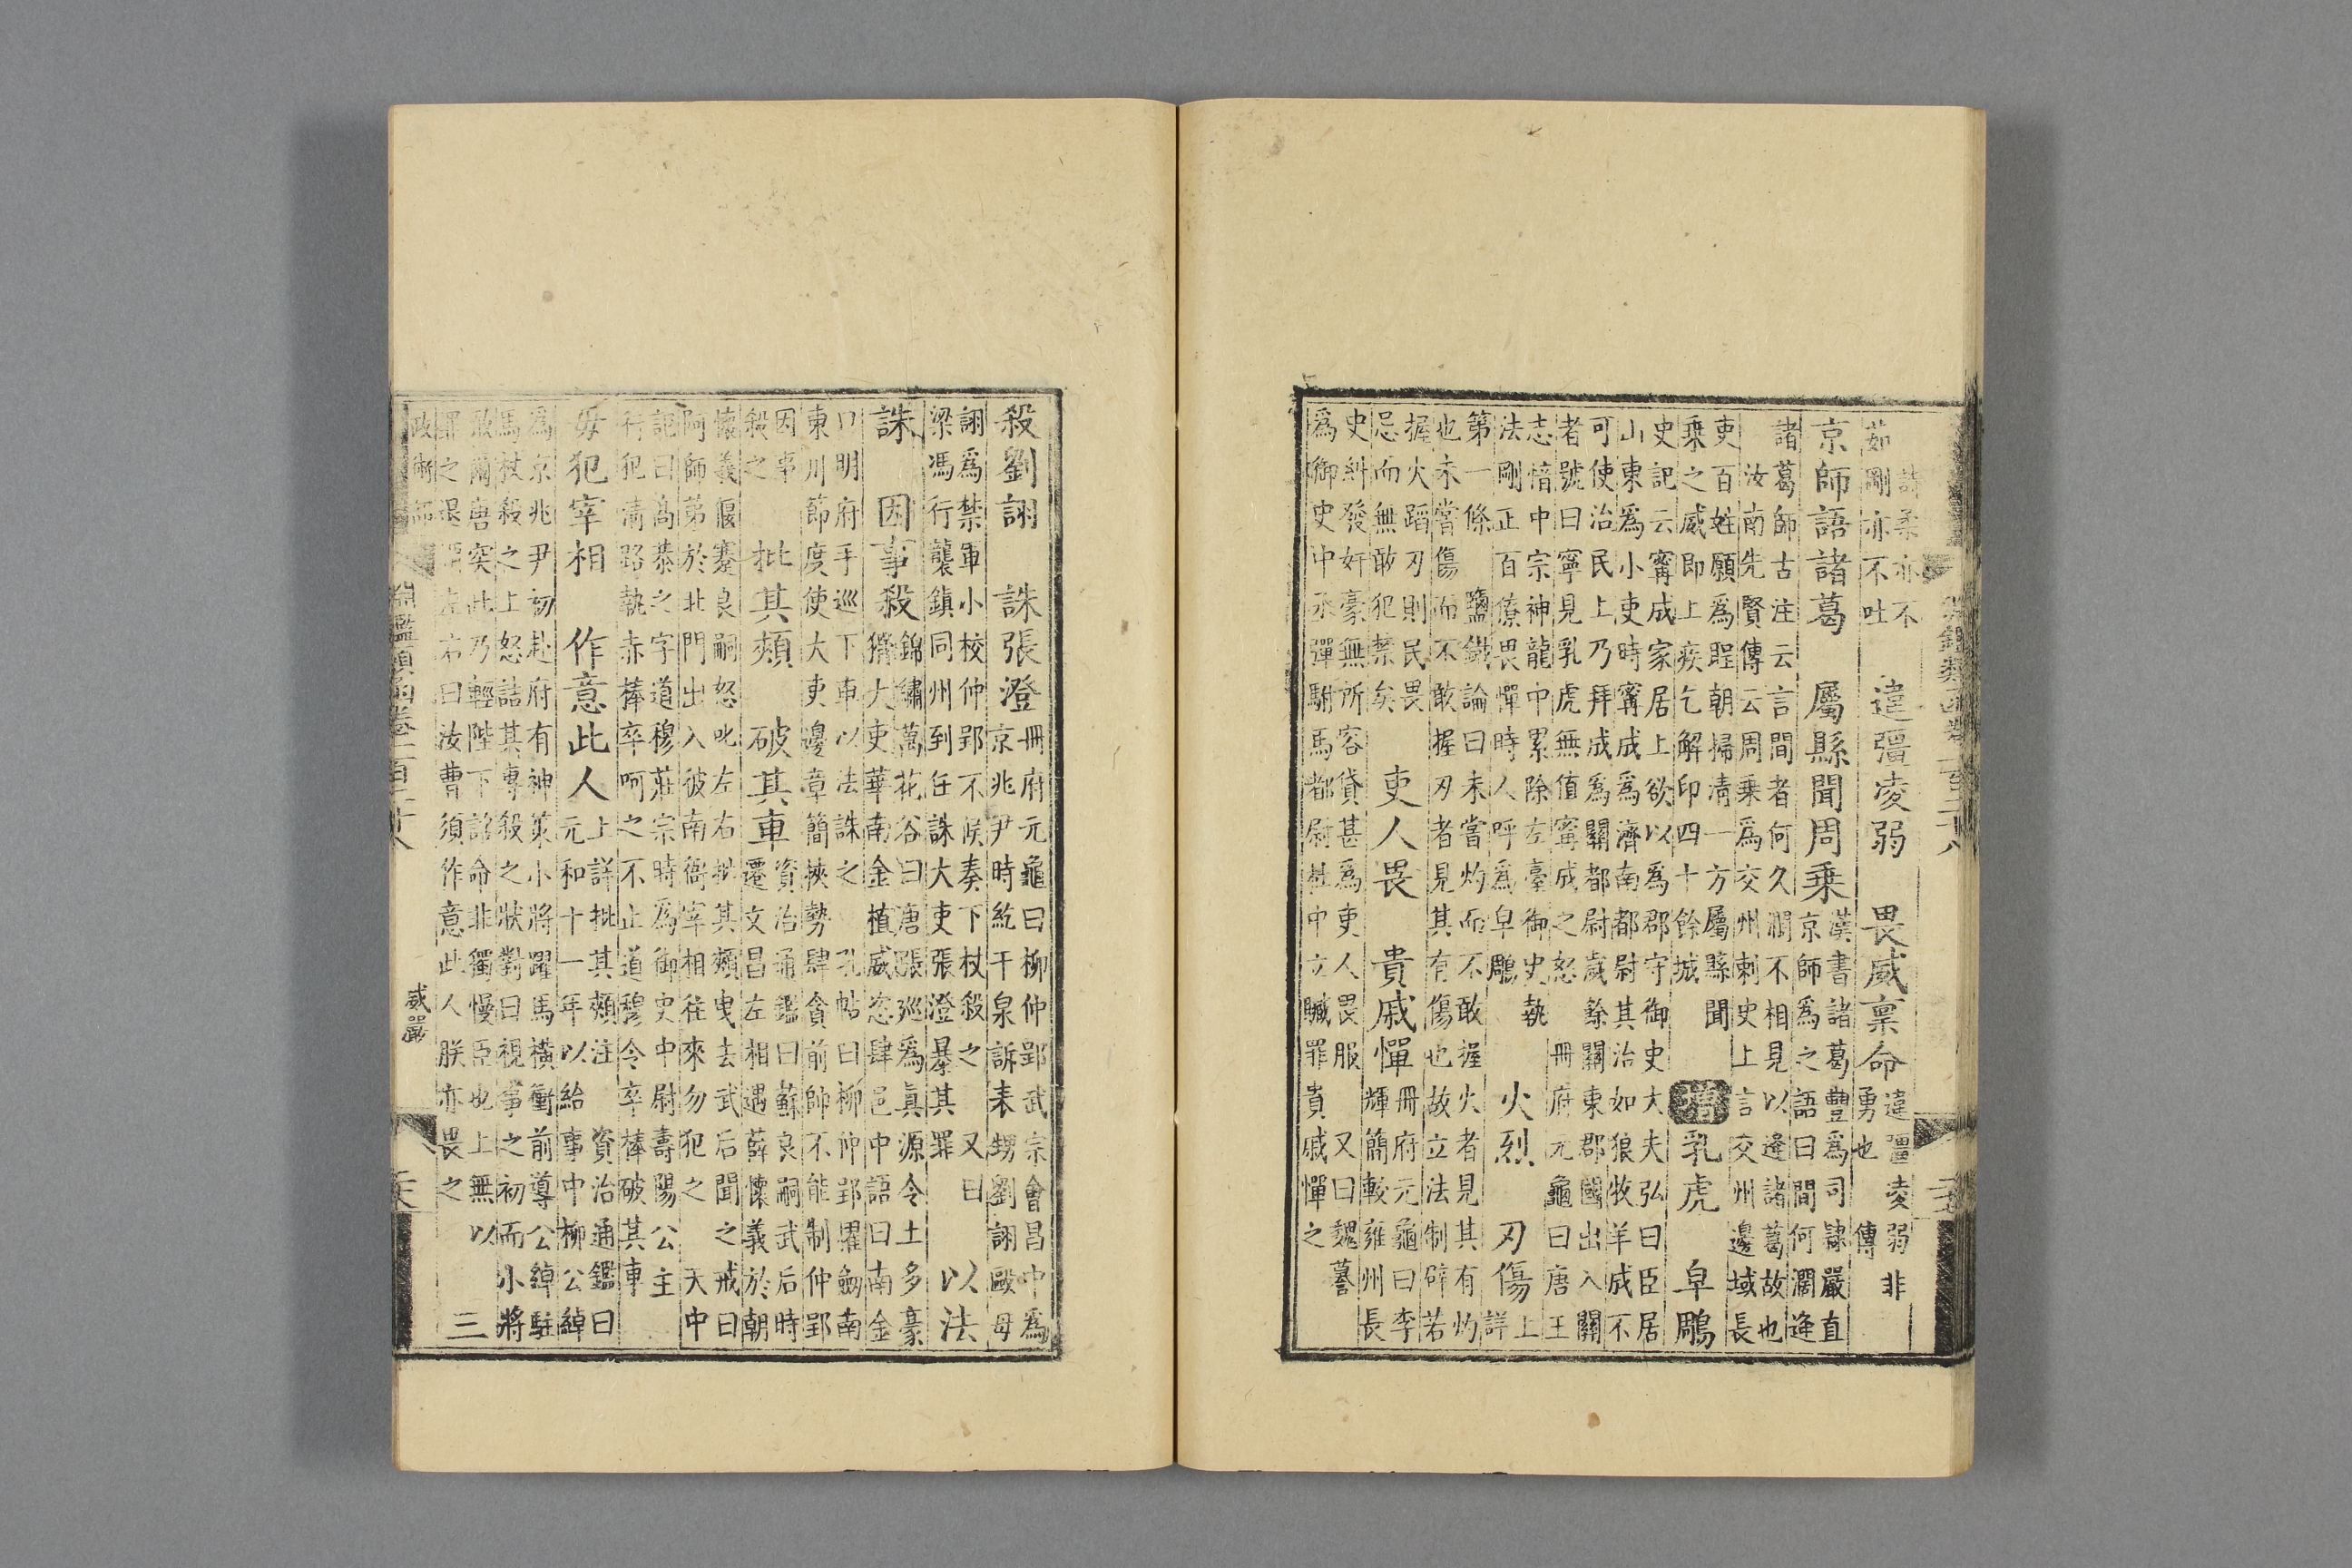 詩柔亦不
茹剛亦不吐
違彊凌弱　畏威稟命
違彊凌弱非
勇也　傳
京師語諸葛　屬縣聞周乘
漢書諸葛豐爲司隷嚴直
京師爲之語曰間何濶逢
諸葛師古注云言間者何久濶不相見以逢諸葛故也
汝南先賢傳云周乘爲交州刺史上言交州邊域長
吏百姓願爲聖朝掃清一方屬縣聞
乘之威即上疾乞解印四十餘城
乳虎　皁鵰
史記云寗成家居上欲以爲郡守御史大夫弘曰臣居
山東爲小吏時寗成爲濟南都尉其治如狼牧羊成不
可使治民上乃拜成爲關都尉歲餘關東郡國出入關
者號曰寧見乳虎無值寗成之怒　冊府元龜曰唐王
志愔中宗神龍中累除左臺御史執
法剛正百僚畏憚時人呼爲皁鵰
火烈　刃傷
上
詳
第一條　鹽鐵論曰未當灼而不敢握火者見其有灼
也未嘗傷而不敢握刃者見其有傷也故立法制辟若
握火蹈刃則民畏
忌而無敢犯禁矣
吏人畏　貴戚憚
冊府元龜曰李
輝簡較雍州長
史糾發奸豪無所容貸甚爲吏人畏服　又曰魏謩
爲御史中丞彈駙馬都尉杜中立贓罪貴戚憚之
殺劉詡　誅張澄
冊府元龜曰柳仲郢武宗會昌中爲
京兆尹時紇干泉訴表甥劉詡毆母
詡爲禁軍小校仲郢不候奏下杖殺之　又曰
梁馮行襲鎮同州到任誅大吏張澄暴其罪
以法
誅　因事殺
錦繡萬花谷曰唐張巡爲眞源令土多豪
猾大吏華南金植威恣肆邑中語曰南金
口明府手巡下車以法誅之　孔帖曰柳仲郢罷劔南
東川節度使大吏邊章簡挾勢肆貪前帥不能制仲郢
因事
殺之
批其頰　破其車
資治通鑑曰蘇良嗣武后時
遷文昌左相遇薛懷義於朝
懷義偃蹇良嗣怒叱左右批其頰曳去武后聞之戒曰
阿師第於北門出入彼南衙宰相往來勿犯之　天中
記曰高恭之字道穆莊宗時爲御史中尉壽陽公主
行犯清路執赤棒卒呵之不止道穆令卒棒破其車
毋犯宰相　作意此人
上詳批其頰注　資治通鑑曰
元和十一年以給事中柳公綽
爲京兆尹初赴府有神策小將躍馬橫衝前導公綽駐
馬杖殺之上怒詰其專殺之狀對曰視事之初而小將
敢爾唐突此乃輕陛下詔命非獨慢臣也上無以
罪之退謂左右曰汝曹須作意此人朕亦畏之
三
政術部　威嚴
淵鑑類函卷一百二十八